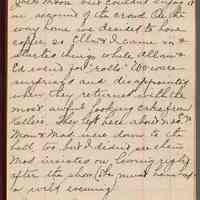 but couldn't enjoy it
on account of the crowd. On the
way home we decided to have
coffee so Ella & I came on &
started things while Allan &
Edward got "rolls". We were
surprised and disappointed
when they returned with the
most awful looking cakes from
They left here about
Mom & Mad were down to the
hall too, but I didn't see them
Mad insisted on leaving right
after the show (He must have had
a wild evening)